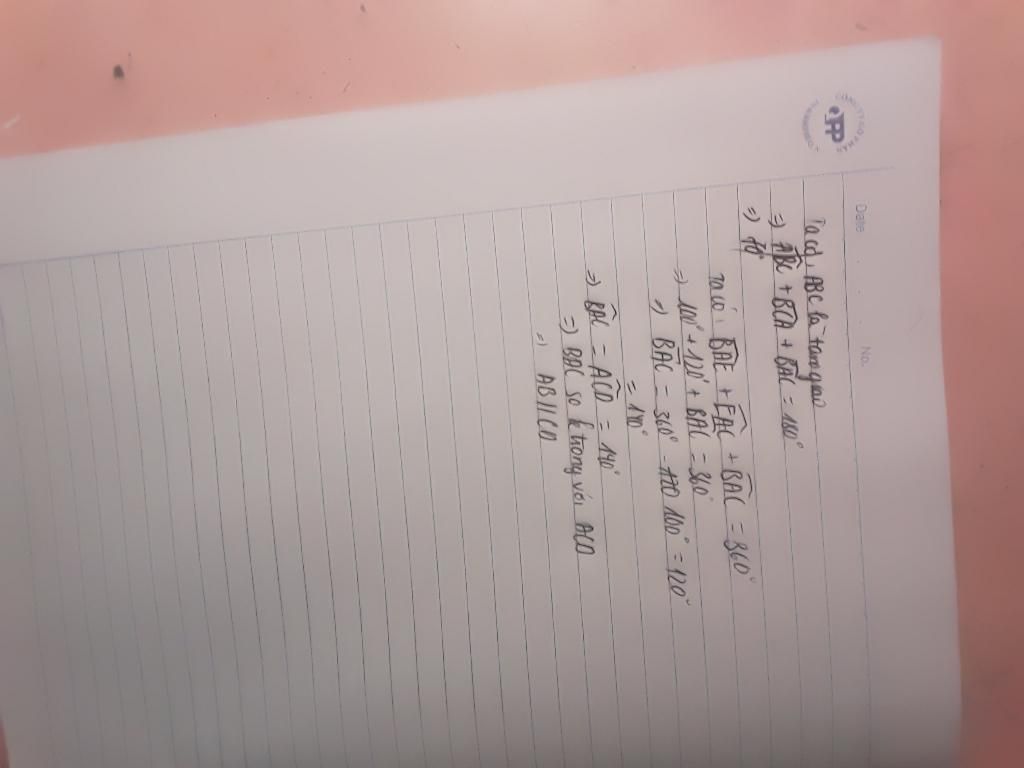 Date No.
Ta có, ABC là tam giác
=> ABC + BCA + BAC = 180°
=> 
Ta có: BAE + EAC + BAC = 360°
=> 100° + 120° + BAC = 360°
=> BAC = 360° - 120 100° = 120°
= 140°
=> BAC = ACD = 140°
=> BAC so le trong với ACD
=> AB//CD